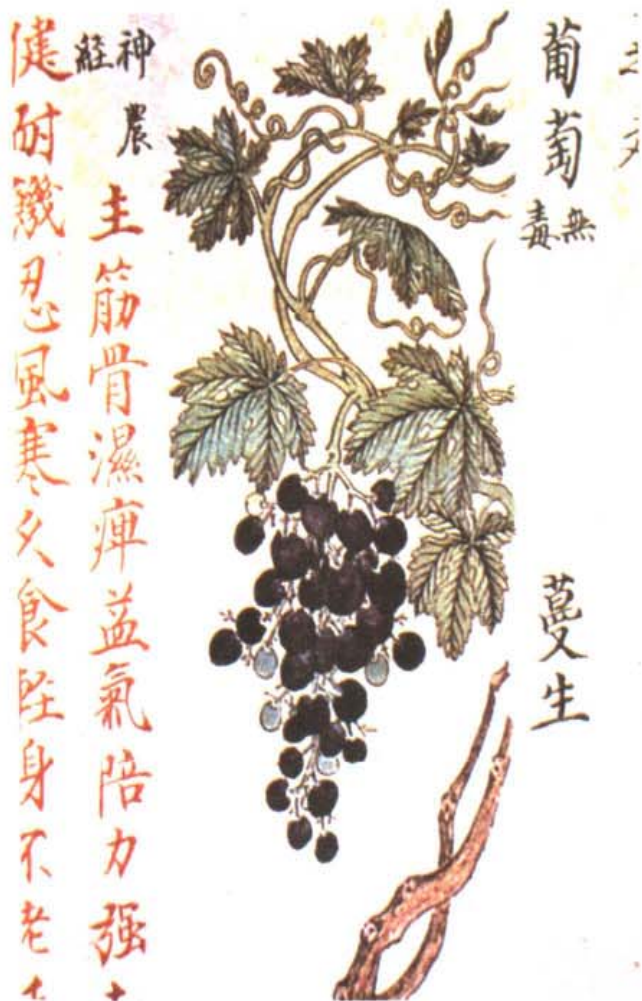 葡萄
無毒
蔓生
神農
經
主筋骨濕痺益氣陪力强
健耐饑忍風寒久食輕身不老